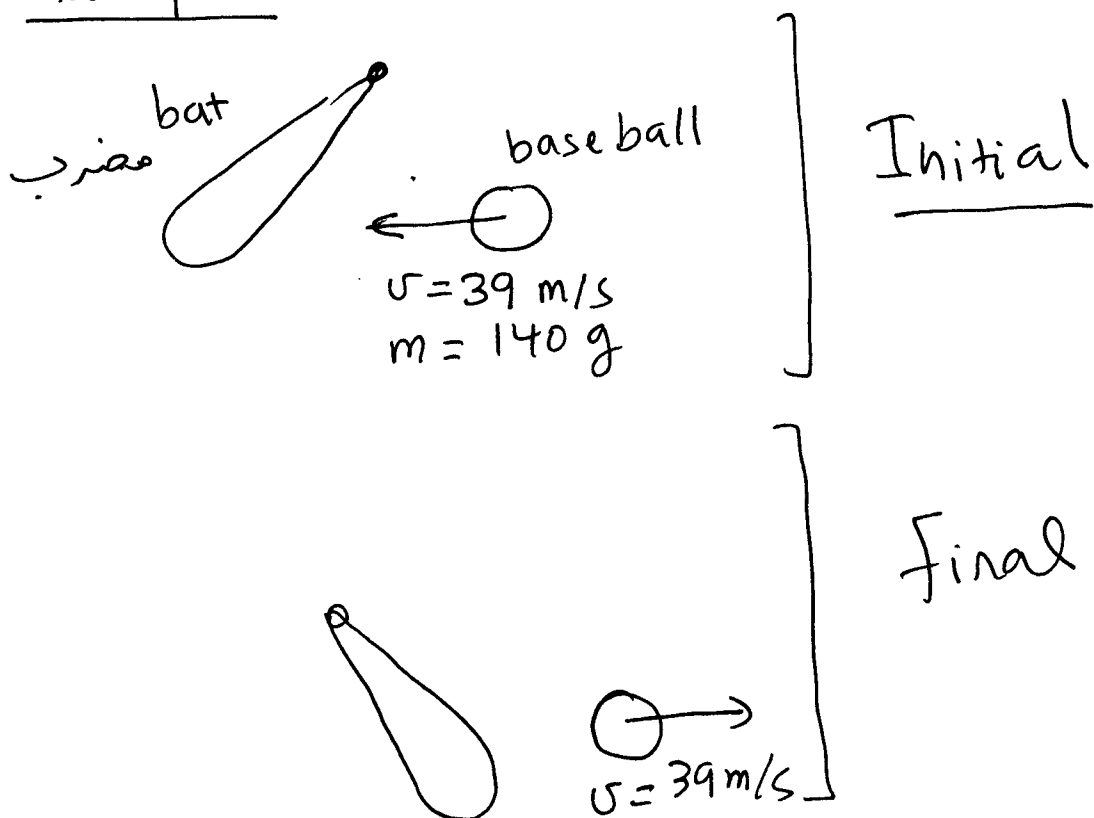 bat
مضرب
base ball
Initial
v = 39 m/s
m = 140 g
final
v = 39 m/s